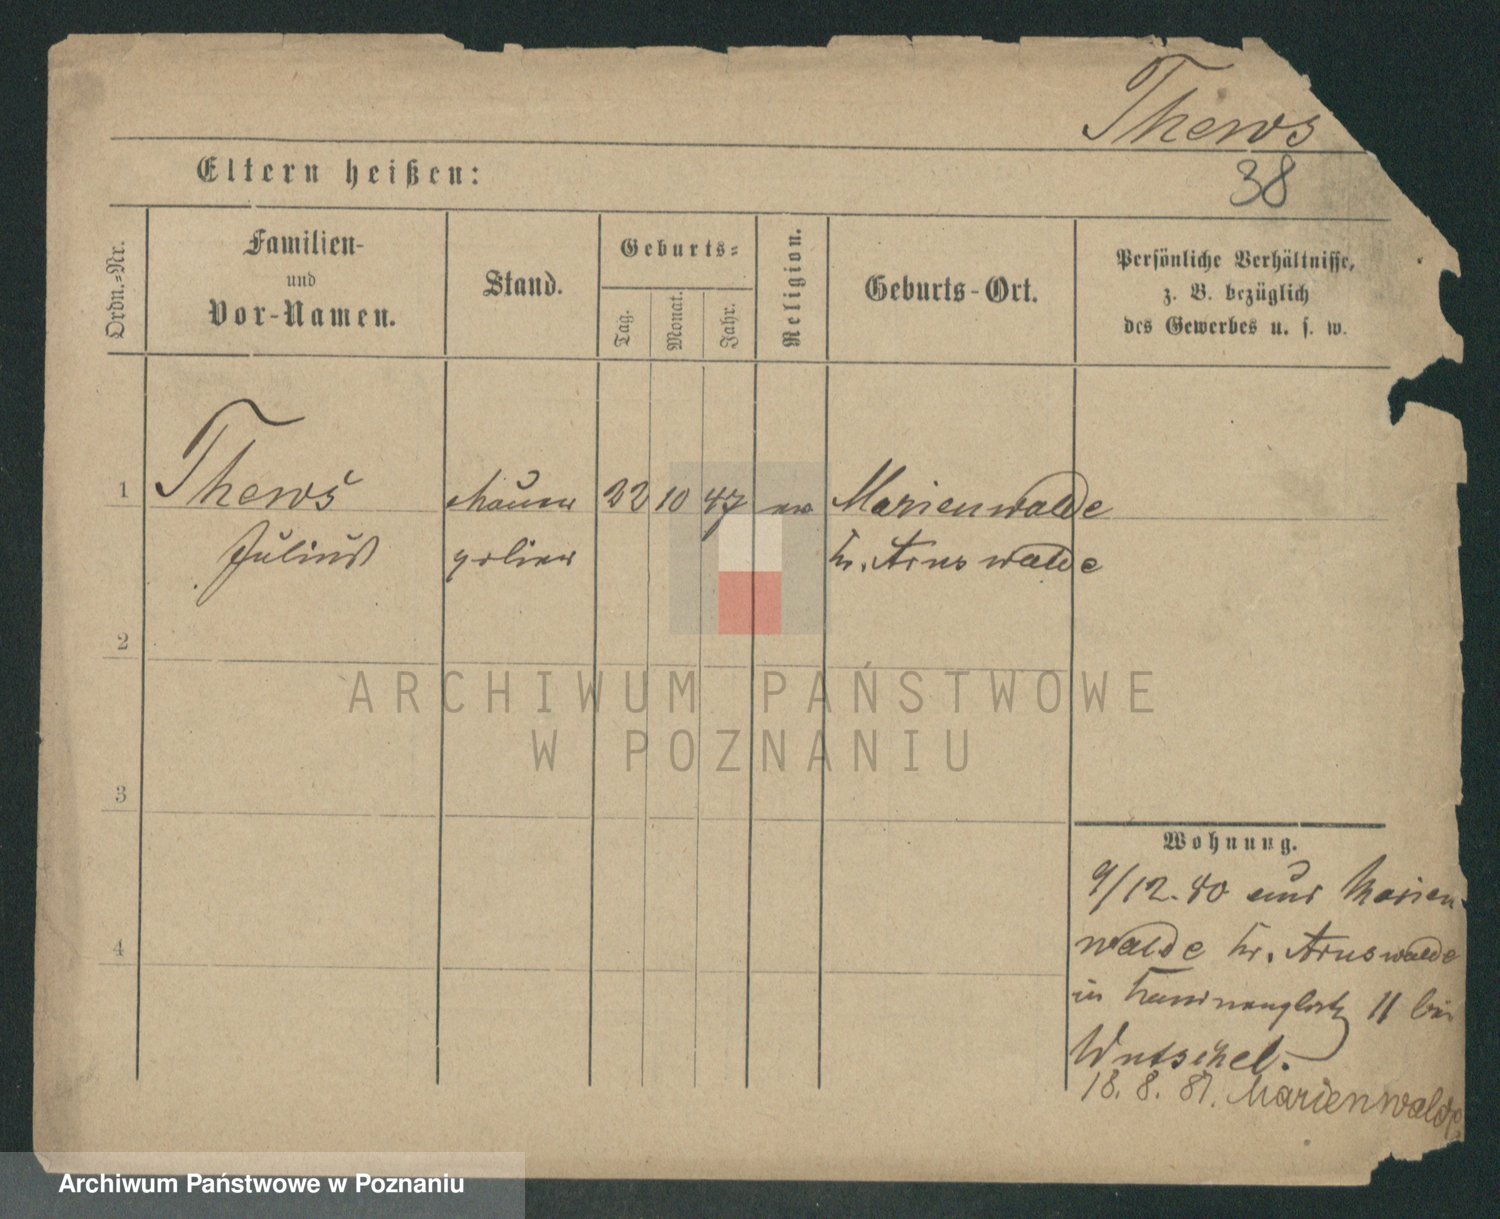 Thews
38
Eltern heißen:
Ordn.-Nr.
Familien-
und
Vor-Namen.
Stand.
Geburts-
Tag.
Monat.
Jahr.
Religion.
Geburts-Ort.
Persönliche Verhältnisse,
z. B. bezüglich
des Gewerbes u. s. w.
1 Thews Maurer 22 10 47 ev Marienwalde
Julius polier Kr. Arnswalde
2
3
4
ARCHIWUM PAŃSTWOWE
W POZNANIU
Wohnung.
9/12.80 aus Marien
walde Kr. Arnswalde
in 11 bei
Wutschel.
18. 8. 81. Marienwalde
Archiwum Państwowe w Poznaniu